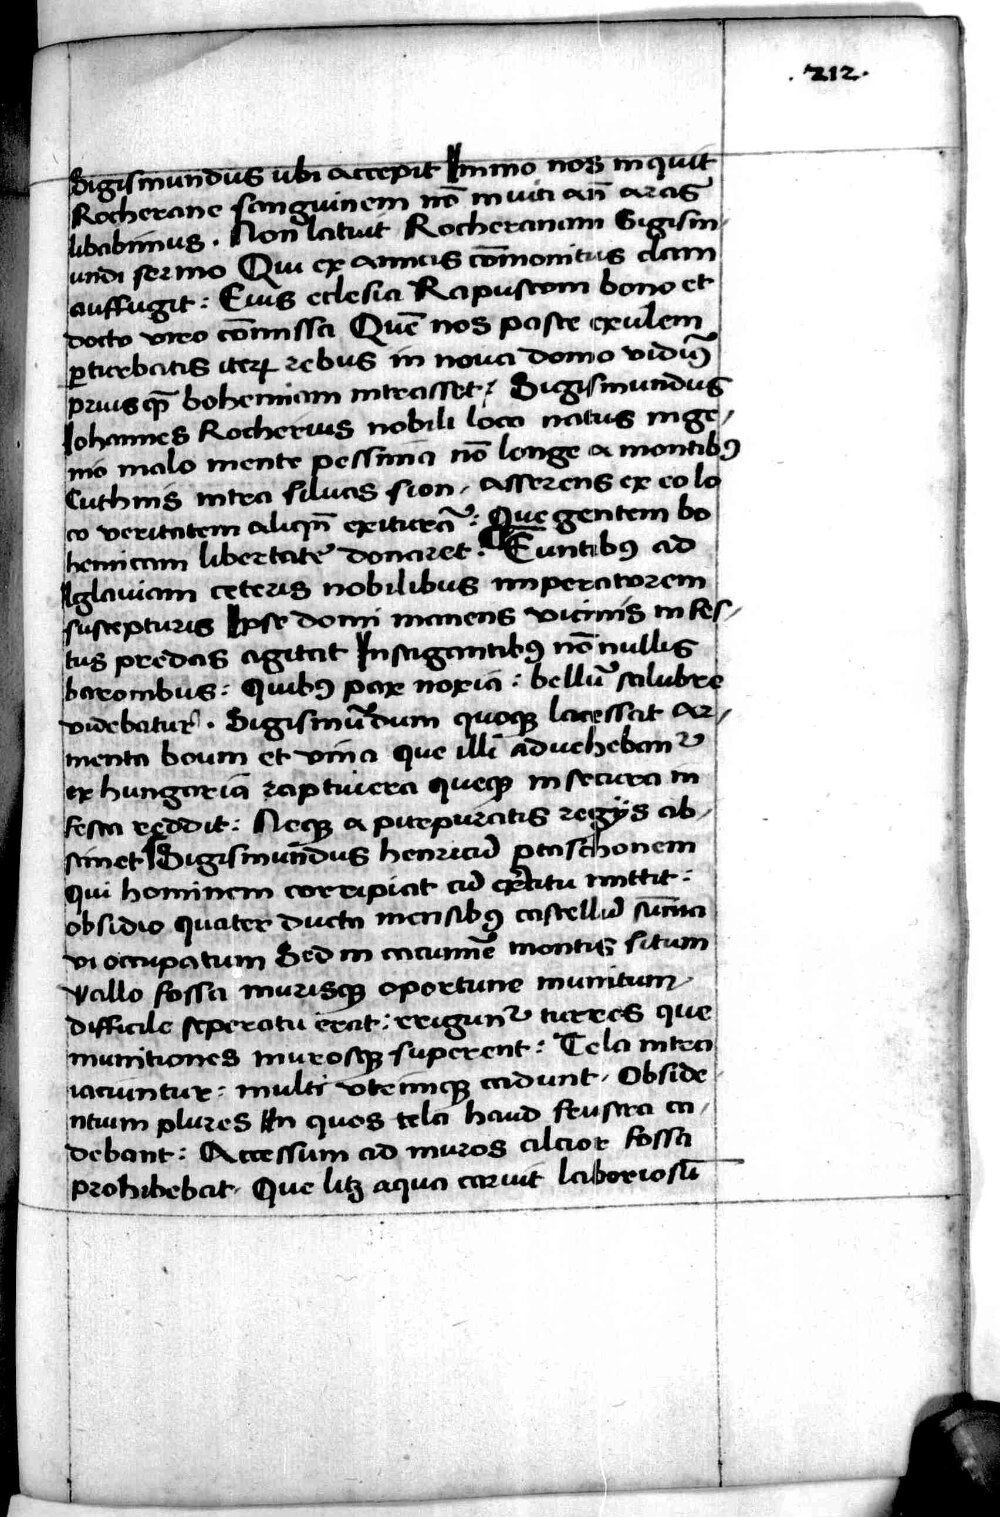 .212.
Sigismundus ubi accepit Immo nos inquit
Rocherane sanguinem nō inviti añ aras
libabimus . Non̄ latuit Rocheranam Sigism-
undi sermo Qui ex amicis cōmonitus clam
auffugit : Eius eclesia Rapuscom bono et
docto viro cōmissa Quē nos paste exulem
ꝑturbatis iterꝝ rebus in noua domo vidimꝰ
prius qꝫ bohemiam intrasset / Sigismundus
Iohannes Rocherius nobili loco natus inge-
nio malo mente pessima nō longe a montibꝰ
Cuthnis intra siluas sion / asserens ex eo lo
co veritatem aliqn̄ exiturā : Que gentem bo
hemicam libertate donaret : Euntibꝰ ad
Iglauiam ceteris nobilibus imperatorem
suscepturis Ipse domi manens vicinis infes-
tus predas agitat Instigantibꝰ nō nullis
baronibus : Quibꝰ pax noxia : bellū salubre
videbatur . Sigismūdum quoqꝫ lacessit ar-
menta boum et vina que illi aduehebant᷑
ex hungaria raptiuera queqꝫ insecura in
festa reddit : Neqꝫ a purpuratis regijs ab-
stinet Sigismundus henricū ptaschonem
Qui hominem corripiat cū exercitu mittit :
obsidio quater ducta mensibꝰ castellū summa
vi occupatum Sed in cacumīe montis situm
Vallo fossa murisqꝫ oportune munitum
difficile seperatu erat : erigunt᷑ turres que
munitiones murosqꝫ superent : Tela intra
iaciuntur : multi vtrimqꝫ cadunt . Obside
ntium plures In quos tela haud frustra ca-
debant : Accessum ad muros alcior fossa
prohibebat . Que litꝫ aqua caruit laboriosū